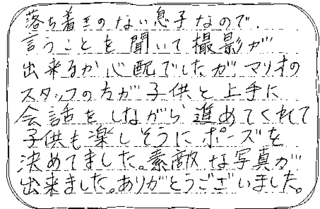 落ち着きのない息子なので、
言うことを聞いて撮影が
出来るか心配でしたがマリオの
スタッフの方が子供と上手に
会話をしながら進めてくれて
子供も楽しそうにポーズを
決めてました。素敵な写真が
出来ました。ありがとうございました。